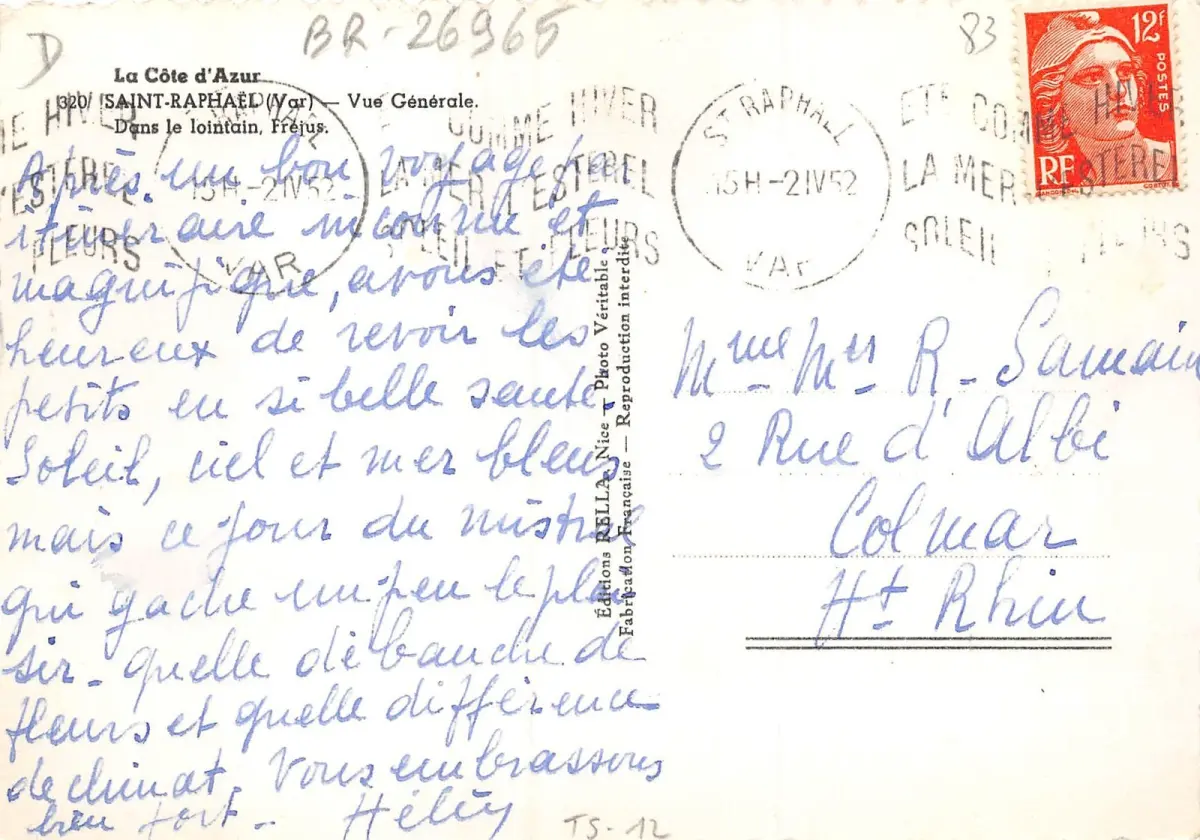 D
BR-26965
83
La Côte d'Azur
320/ SAINT-RAPHAËL (Var) — Vue Générale.
Dans le lointain, Fréjus.
12F
POSTES
RF
ST RAPHAEL
15H -2 IV 52
VAR
ETE COMME HIVER
LA MER L'ESTEREL
SOLEIL ET FLEURS
ST RAPHAEL
15H -2 IV 52
VAR
ETE COMME HIVER
LA MER L'ESTEREL
SOLEIL FLEURS
Après un bon voyage par
itinéraire inconnu et
magnifique, avons été
heureux de revoir les
petits en si belle santé.
Soleil, ciel et mer bleus
mais ce jour du mistral
qui gache un peu le plai
sir - quelle débauche de
fleurs et quelle différence
de climat. Vous embrassons
bien fort -
Éditions RELLA, Nice — Photo Véritable
Fabrication Française — Reproduction interdite
Mme Mr R - Samain
2 Rue d'Albi
Colmar
Ht Rhin
TS-12